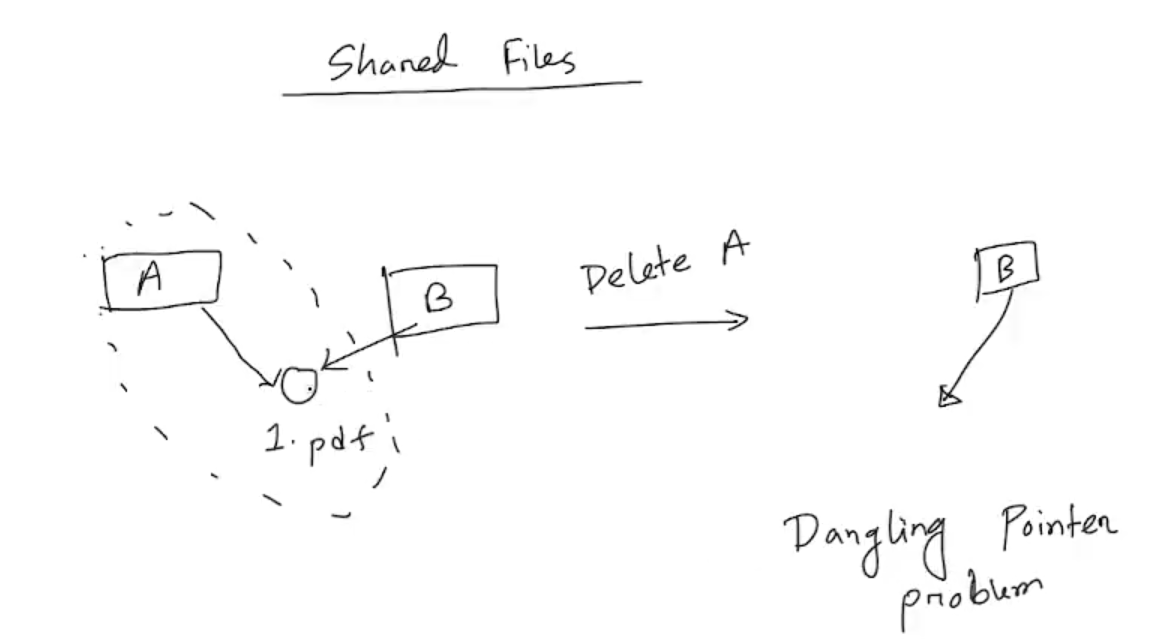 Shared Files
A
B
1.pdf
Delete A
B
Dangling Pointer
problem